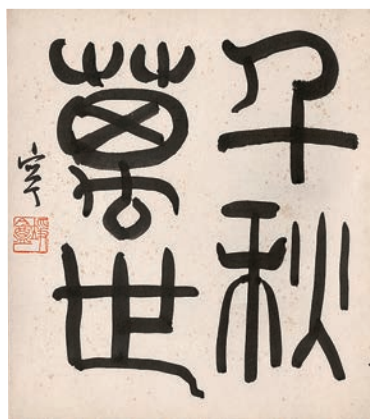 千秋
萬世